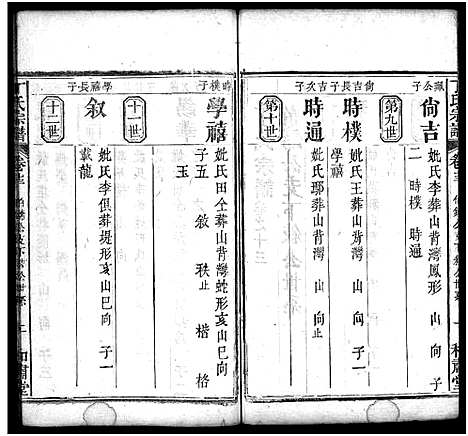 丁氏宗譜
卷
和肅堂
第九世
公子
尙吉
妣氏李葬山背灣鳳形
二 時樸 時通
尙吉長子
時樸
妣氏王葬山背灣 山 向 子一
學禧
第十世
吉次子
時通
妣氏瑯葬山背灣 山 向止
丁氏宗譜
卷
二
和肅堂
時樸子
學禧
妣氏田仝葬山背灣蛇形亥山巳向
子五 敘 秩止 楷 格
玉
十一世
學禧長子
敘
妣氏李俱葬堤形亥山巳向 子一
載龍
十二世